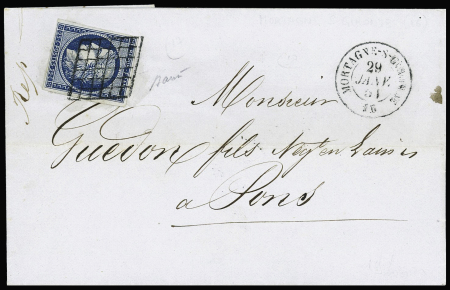 MORTAGNE-S-GIRONDE
29
JANV.
51
16
Monsieur
Guédon fils Negt en Laines
a Pons